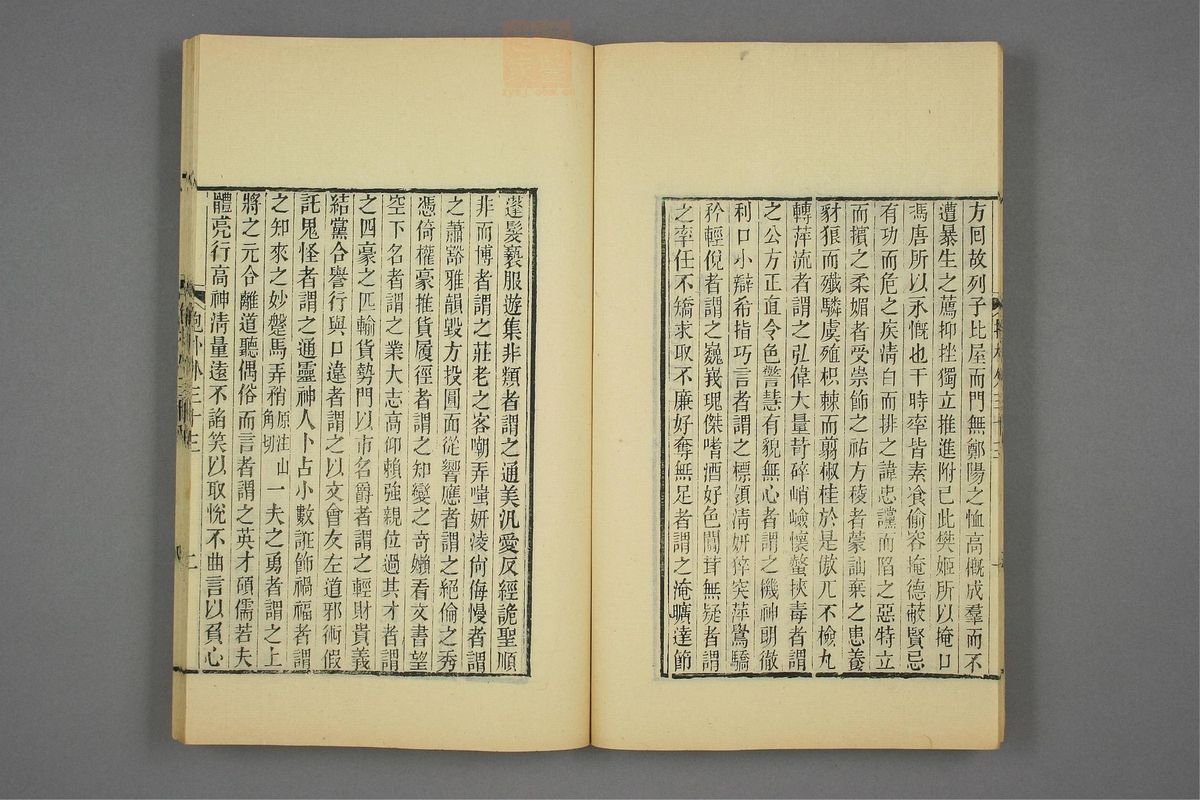 方回故列子比屋而門無鄭陽之恤高概成羣而不
遭暴生之薦抑挫獨立推進附已此樊姬所以掩口
馮唐所以永慨也干時率皆素飡偷容掩德蔽賢忌
有功而危之疾清白而排之諱忠讜而陷之惡特立
而擯之柔媚者受崇飾之祐方稜者蒙訕棄之患養
豺狼而殲驎虞殖枳棘而翦椒桂於是傲兀不檢丸
轉萍流者謂之弘偉大量苛碎峭嶮懷螫挾毒者謂
之公方正直令色警慧有貌無心者謂之機神朗徹
利口小辯希指巧言者謂之標領清妍猝突萍鸎驕
矜輕俔者謂之巍峩瑰傑嗜酒好色闒茸無疑者謂
之率任不矯求取不廉好奪無足者謂之淹曠遠節
蓬髮褻服遊集非類者謂之通美汎愛反經詭聖順
非而博者謂之莊老之客嘲弄嗤妍凌尙侮慢者謂
之蕭豁雅韻毀方投圓面從響應者謂之絕倫之秀
憑倚權豪推貨履徑者謂之知變之奇嬾看文書望
空下名者謂之業大志高仰賴強親位過其才者謂
之四豪之匹輸貨勢門以市名爵者謂之輕財貴義
結黨合譽行與口違者謂之以文會友左道邪術假
託鬼怪者謂之通靈神人卜占小數誑飾禍福者謂
之知來之妙㿄馬弄矟原注山角切一夫之勇者謂之上
將之元合離道聽偶俗而言者謂之英才碩儒若夫
體亮行高神淸量遠不諂笑以取悅不曲言以負心
抱朴外三十三
二